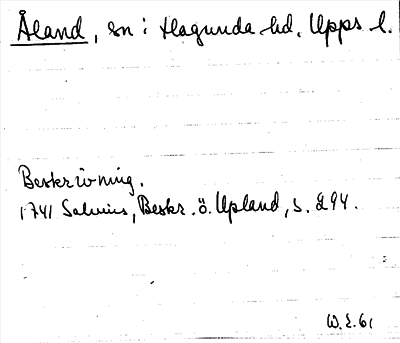 Åland, sn i Hagunda hd. Upps l.
Beskrivning.
1741 Salvius, Beskr. ö. Upland, s. 294.
W.E. 61